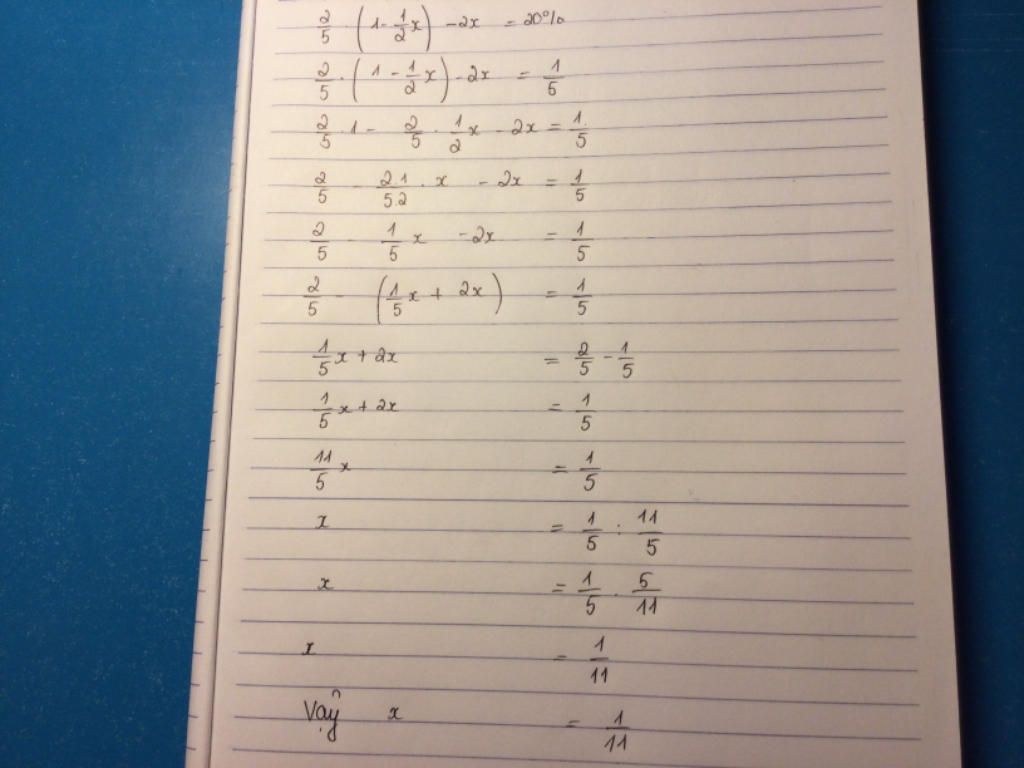 2/5 · (1 - 1/2 x) - 2x = 20%
2/5 · (1 - 1/2 x) - 2x = 1/5
2/5 · 1 - 2/5 · 1/2 x - 2x = 1/5
2/5 - 2.1/5.2 · x - 2x = 1/5
2/5 - 1/5 x - 2x = 1/5
2/5 - (1/5 x + 2x) = 1/5
1/5 x + 2x = 2/5 - 1/5
1/5 x + 2x = 1/5
11/5 x = 1/5
x = 1/5 : 11/5
x = 1/5 . 5/11
x = 1/11
Vậy x = 1/11